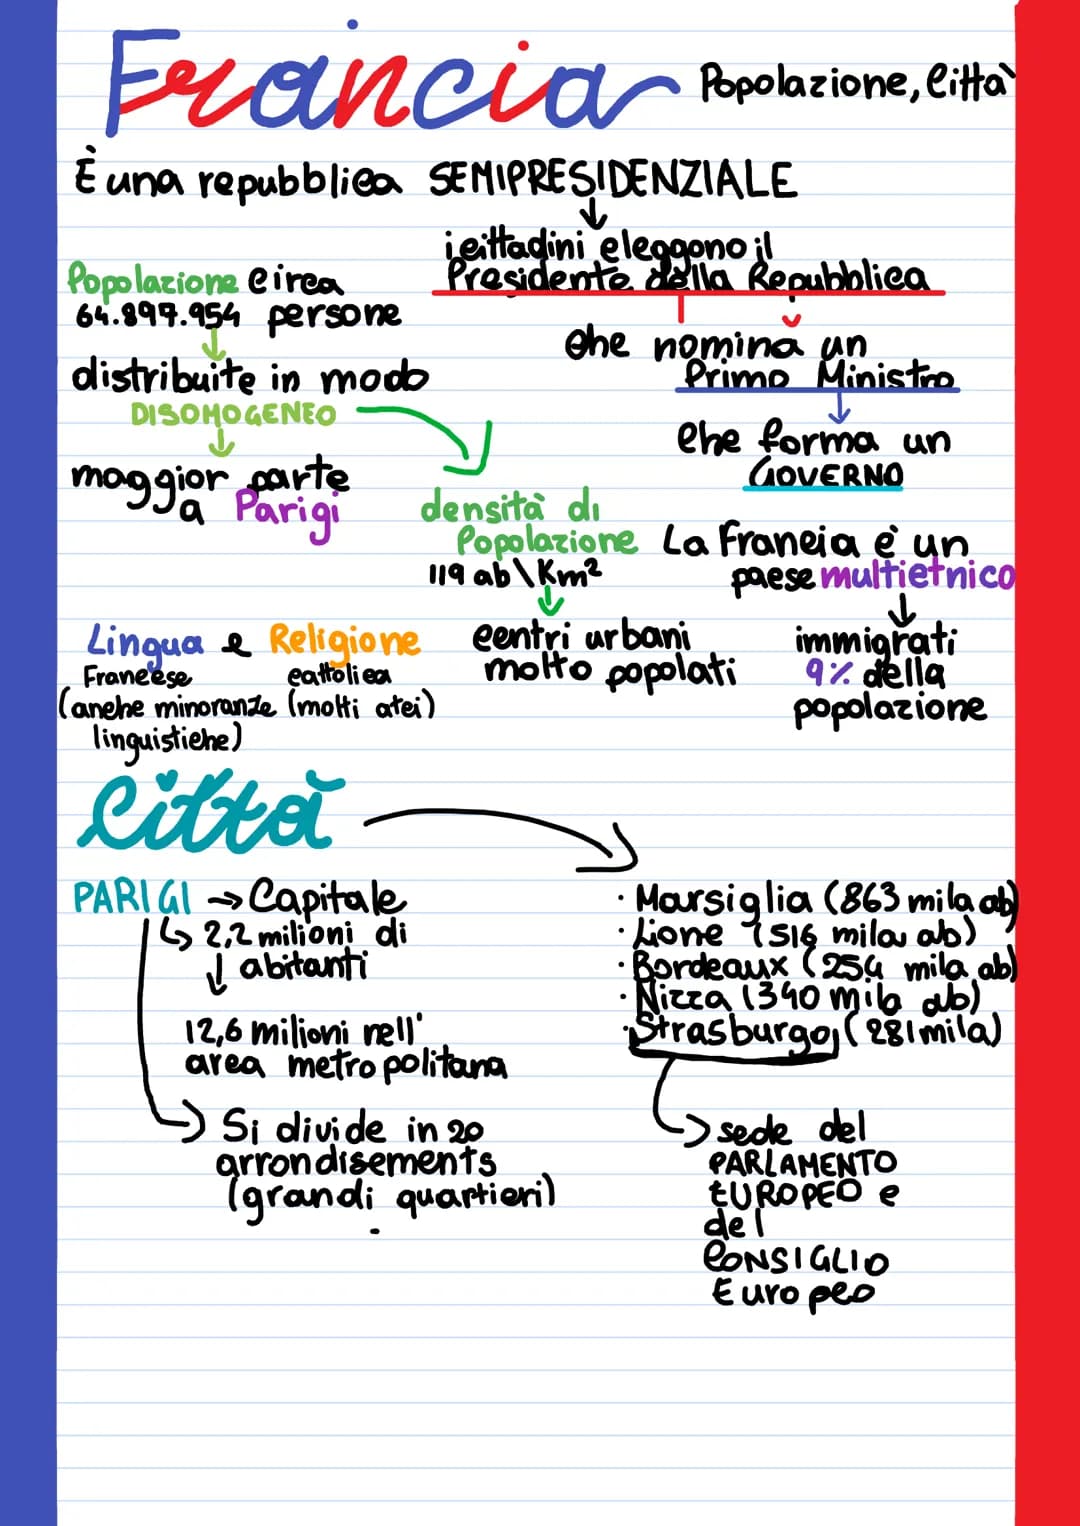 Francia Popolazione, Città
È una repubblica SEMIPRESIDENZIALE
i cittadini eleggono il
Presidente della Repubblica
che nomina un
Primo Ministro
che forma un
GOVERNO
Popolazione circa
64.897.954 persone
distribuite in modo
DISOMOGENEO
maggior parte
a Parigi
densità di
Popolazione
119 ab\Km²
centri urbani
molto popolati
La Francia è un
paese multietnico
immigrati
9% della
popolazione
Lingua e Religione
Francese cattolica
(anche minoranze (molti atei)
linguistiche)
Città
PARIGI → Capitale
2,2 milioni di
abitanti
12,6 milioni nell'
area metropolitana
Si divide in 20
arrondisements
(grandi quartieri)
· Marsiglia (863 mila ab)
· Lione (516 mila ab)
· Bordeaux (254 mila ab)
· Nizza (340 mila ab)
· Strasburgo (281 mila)
sede del
PARLAMENTO
EUROPEO e
del
CONSIGLIO
Europeo